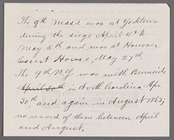 The 9th Mass was at Yorktown
during the siege April 11th to
May 5th and was at Hanover
Court House, May 27th.
The 9th N.Y. was with Burnside
in North Carolina Apr
30th and again in August 1862,
no record of them between April
and August.